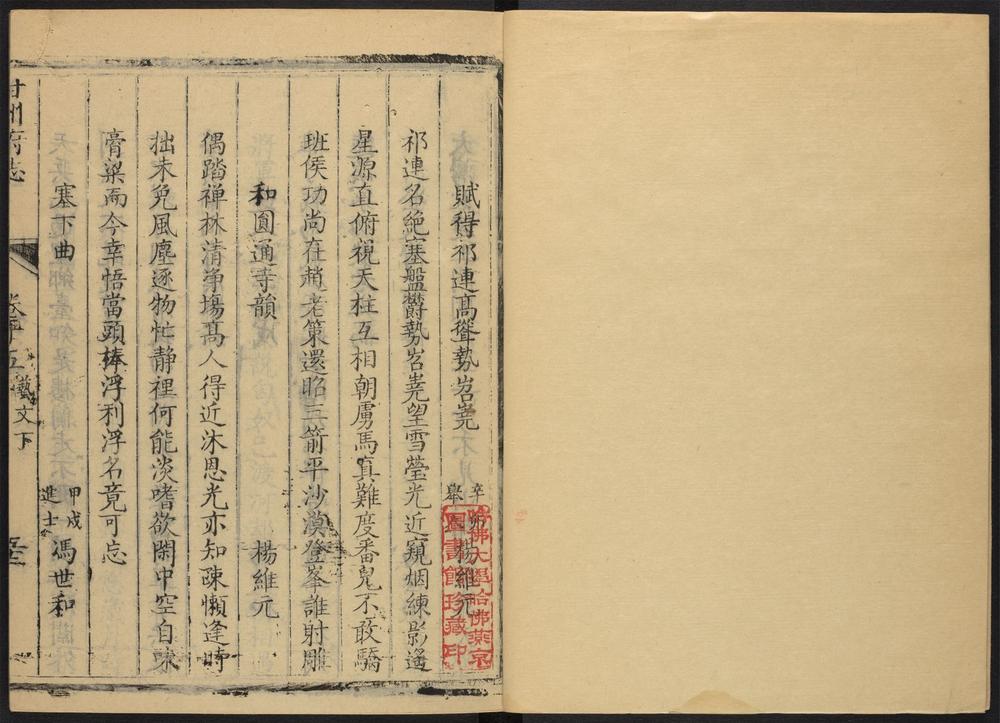 賦得祁連高聳勢岧嶤
辛 舉 楊維元
哈佛大學哈佛燕京圖書館珍藏印
祁連名絶塞盤欝勢岧嶤望雪瑩光近窺烟練影遙
星源直俯視天柱互相朝虜馬真難度番兒不敢驕
班侯功尚在趙老策還昭三箭平沙漠登峯誰射雕
和圓通寺韻 楊維元
偶踏禅林清净塲高人得近沐恩光亦知疎懶逢時
拙未免風塵逐物忙静裡何能淡嗜欲閑中空自
膏粱而今幸悟當頭棒浮利浮名竟可忘
塞下曲 甲戍進士 馮世和
甘州府志 藝文下